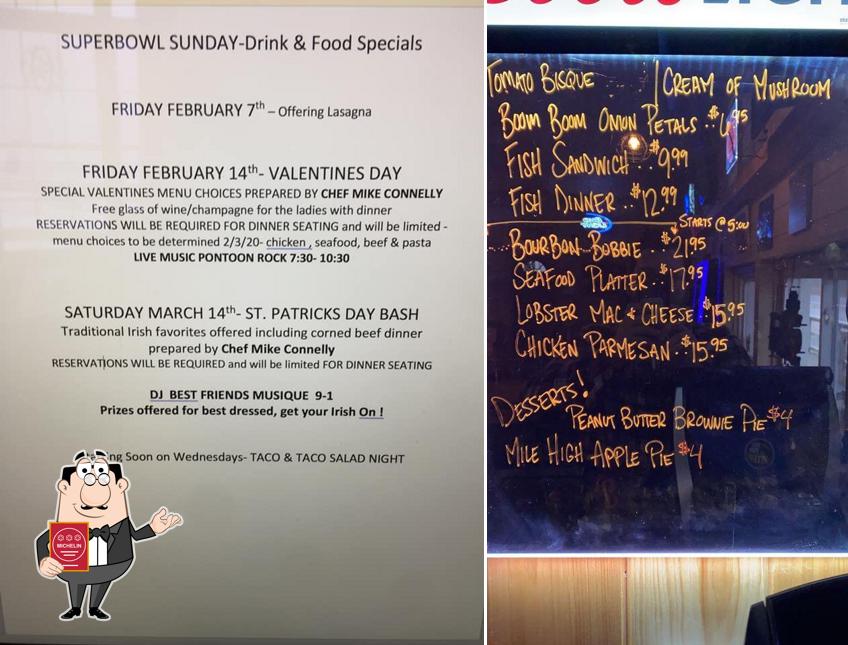 SUPERBOWL SUNDAY-Drink & Food Specials
FRIDAY FEBRUARY 7th – Offering Lasagna
FRIDAY FEBRUARY 14th- VALENTINES DAY
SPECIAL VALENTINES MENU CHOICES PREPARED BY CHEF MIKE CONNELLY
Free glass of wine/champagne for the ladies with dinner
RESERVATIONS WILL BE REQUIRED FOR DINNER SEATING and will be limited -
menu choices to be determined 2/3/20- chicken , seafood, beef & pasta
LIVE MUSIC PONTOON ROCK 7:30- 10:30
SATURDAY MARCH 14th- ST. PATRICKS DAY BASH
Traditional Irish favorites offered including corned beef dinner
prepared by Chef Mike Connelly
RESERVATIONS WILL BE REQUIRED and will be limited FOR DINNER SEATING
DJ BEST FRIENDS MUSIQUE 9-1
Prizes offered for best dressed, get your Irish On !
ng Soon on Wednesdays- TACO & TACO SALAD NIGHT
MICHELIN
TOMATO BISQUE | CREAM OF MUSHROOM
BOOM BOOM ONION PETALS..$6.95
FISH SANDWICH..$9.99
FISH DINNER..$12.99
STARTS @ 5:00
BOURBON BOBBIE..$21.95
SEAFOOD PLATTER..$17.95
LOBSTER MAC & CHEESE..$15.95
CHICKEN PARMESAN..$15.95
DESSERTS!
PEANUT BUTTER BROWNIE PIE $4
MILE HIGH APPLE PIE $4